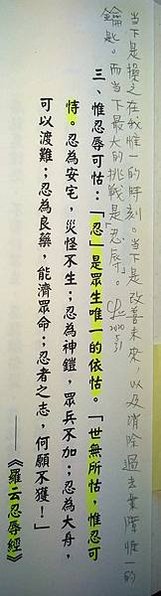 當下是操之在我惟一的時刻。當下是改善未來、以及消除過去業障惟一的
鑰匙。而當下最大的挑戰是「忍辱」。
2020
5/31
三、惟忍辱可怙：「忍」是眾生唯一的依怙。「世無所怙，惟忍可
恃。忍為安宅，災怪不生；忍為神鎧，眾兵不加；忍為大舟，
可以渡難；忍為良藥，能濟眾命；忍者之志，何願不獲！」
——《羅云忍辱經》